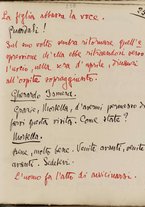 La figlia abbassa la voce.
Guardati!
Sul suo volto sembra ritornare quell'e
spressione di ella ebbe
l'orcio, nella sera d'aprile, dinanzi
all'ospite sopraggiunto.
Gherardo Ismera.
Grazie, Mortella, d'avermi permesso di
farvi questa visita. Come state?
Mortella.
Bene, molto bene. Venite avanti, venite
avanti. Sedetevi.
L'uomo fa l'atto di avvicinarsi.